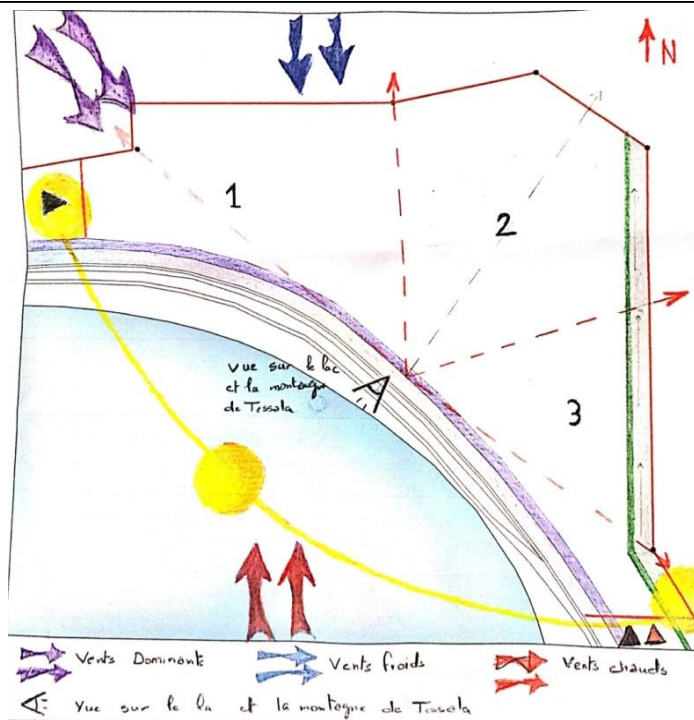 N
1
2
3
vue sur le lac
et la montagne
de Tessala
Vents Dominants
Vents froids
Vents chauds
Vue sur le la et la montagne de Tessala